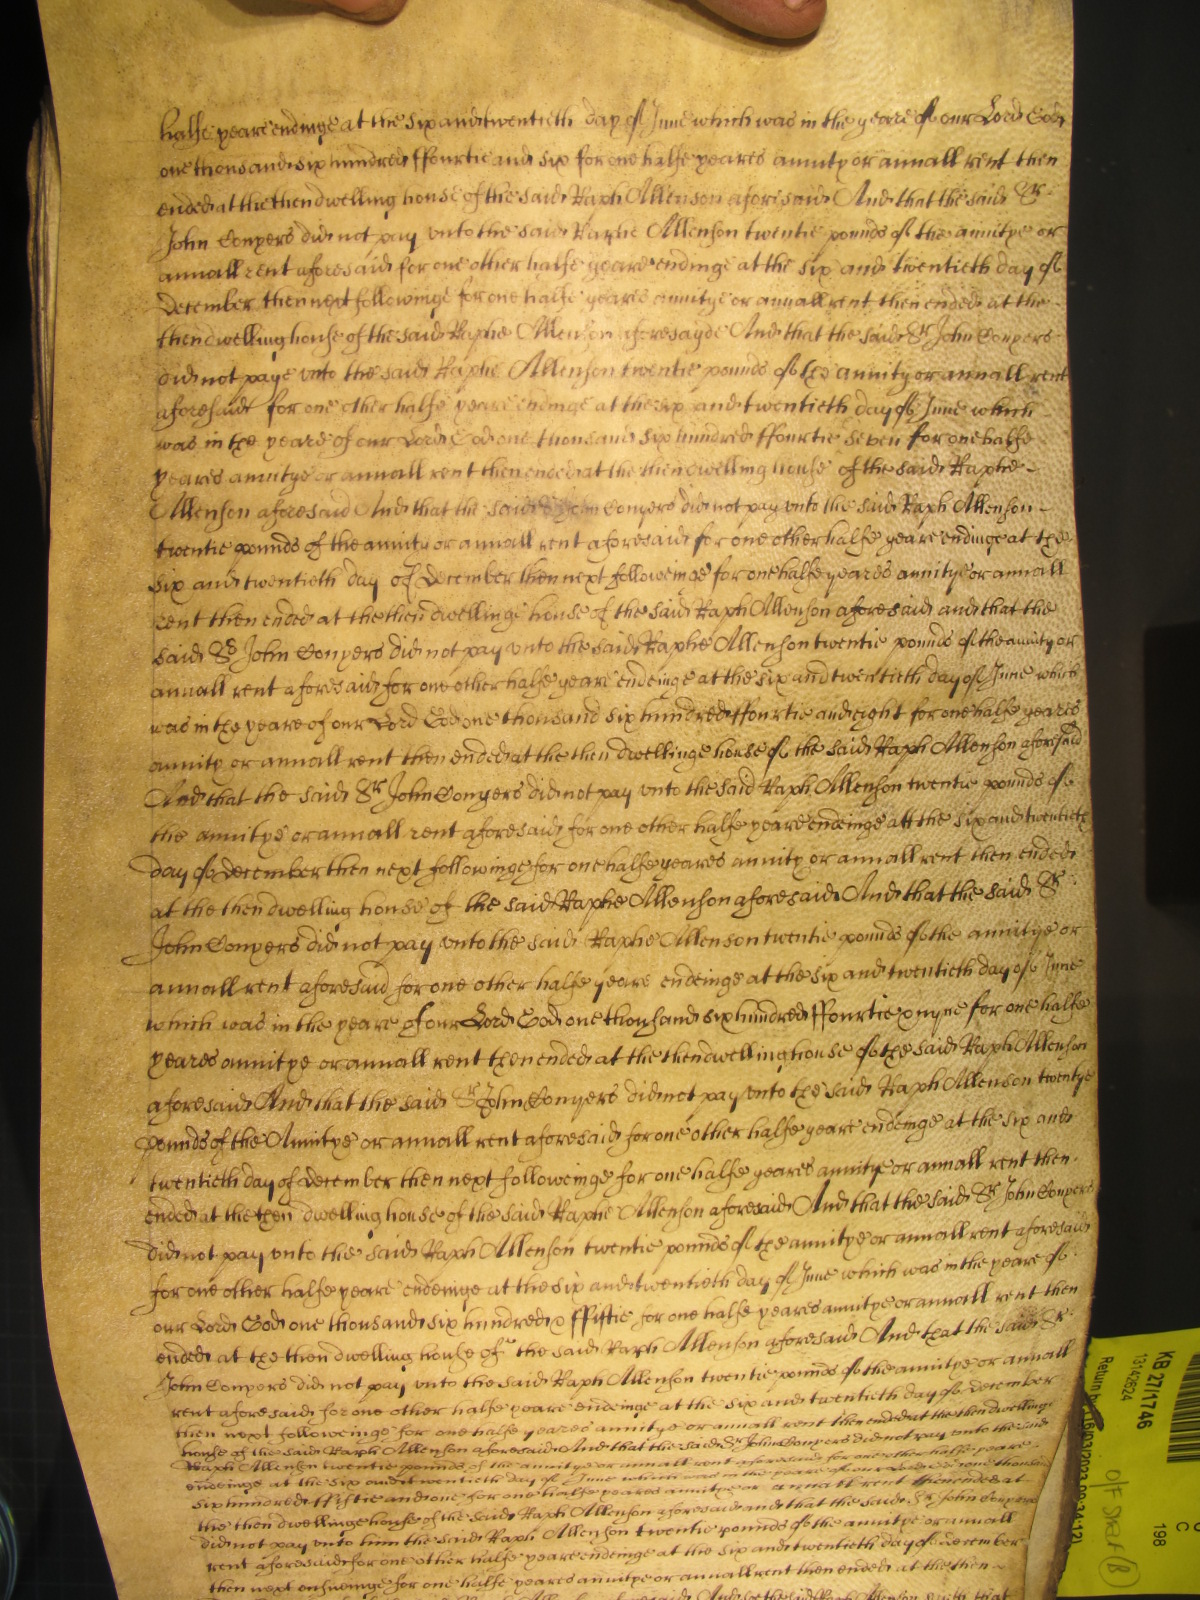 halfe yeare endinge at the six and twentieth day of June which was in the yeare of our Lord God
one thousand six hundred ffourtie and six for one halfe yeares annuity or annuall rent then
ended at the then dwelling house of the said Raph Allenson aforesaid And that the said Sr
John Conyers did not pay unto the said Raphe Allenson twentie pounds of the annuitye or
annuall rent aforesaid for one other halfe yeare endinge at the six and twentieth day of
December then next followinge for one halfe yeares annuitye or annuall rent then ended at the
then dwelling house of the said Raphe Allenson aforesayde And that the said Sr John Conyers
did not paye unto the said Raphe Allenson twentie pounds of the annuity or annuall rent
aforesaid for one other halfe yeare endinge at the six and twentieth day of June which
was in the yeare of our Lord God one thousand six hundred ffourtie seven for one halfe
yeares annuitye or annuall rent then ended at the then dwelling house of the said Raphe
Allenson aforesaid And that the said Sr John Conyers did not pay unto the said Raph Allenson
twentie pounds of the annuity or annuall rent aforesaid for one other halfe yeare endinge at the
six and twentieth day of December then next followeinge for one halfe yeares annuitye or annuall
rent then ended at the then dwellinge house of the said Raph Allenson aforesaid and that the
said Sr John Conyers did not pay unto the said Raphe Allenson twentie pounds of the annuity or
annuall rent aforesaid for one other halfe yeare endeinge at the six and twentieth day of June which
was in the yeare of our Lord God one thousand six hundred ffourtie and eight for one halfe yeares
annuity or annuall rent then ended at the then dwellinge house of the said Raph Allenson aforesaid
And that the said Sr John Conyers did not pay unto the said Raph Allenson twentie pounds of
the annuitye or annuall rent aforesaid for one other halfe yeare endeinge att the six and twentieth
day of December then next followinge for one halfe yeares annuity or annuall rent then ended
at the then dwelling house of the said Raphe Allenson aforesaid And that the said Sr
John Conyers did not pay unto the said Raphe Allenson twentie pounds of the annuitye or
annuall rent aforesaid for one other halfe yeare endeinge at the six and twentieth day of June
which was in the yeare of our Lord God one thousand six hundred ffourtie nyne for one halfe
yeares annuitye or annuall rent then ended at the then dwelling house of the said Raph Allenson
aforesaid And that the said Sr John Conyers did not pay unto the said Raph Allenson twentye
pounds of the Annuitye or annuall rent aforesaid for one other halfe yeare endeinge at the six and
twentieth day of December then next followeinge for one halfe yeares annuitye or annuall rent then
ended at the then dwelling house of the said Raphe Allenson aforesaid And that the said Sr John Conyers
did not pay unto the said Raph Allenson twentie pounds of the annuitye or annuall rent aforesaid
for one other halfe yeare endeinge at the six and twentieth day of June which was in the yeare of
our Lord God one thousand six hundred ffiftie for one halfe yeares annuitye or annuall rent then
ended at the then dwelling house of the said Raph Allenson aforesaid And that the said Sr
John Conyers did not pay unto the said Raph Allenson twentie pounds of the annuitye or annuall
rent aforesaid for one other halfe yeare endeinge at the six and twentieth day of December
then next followeinge for one halfe yeares annuitye or annuall rent then ended at the then dwellinge
house of the said Raph Allenson aforesaid And that the said Sr John Conyers did not pay unto the said
Raph Allenson twentie pounds of the annuitye or annuall rent aforesaid for one other halfe yeare
endeinge at the six and twentieth day of June which was in the yeare of our Lord God one thousand
six hundred ffiftie and one for one halfe yeares annuitye or annuall rent then ended at
the then dwellinge house of the said Raph Allenson aforesaid and that the said Sr John Conyers
did not pay unto him the said Raph Allenson twentie pounds of the annuitye or annuall
rent aforesaid for one other halfe yeare endeinge at the six and twentieth day of December
then next ensueinge for one halfe yeares annuitye or annuall rent then ended at the then
Raph Allenson that
KB 27/1746
13142624
Return by
198
C
Off Shelf (B)